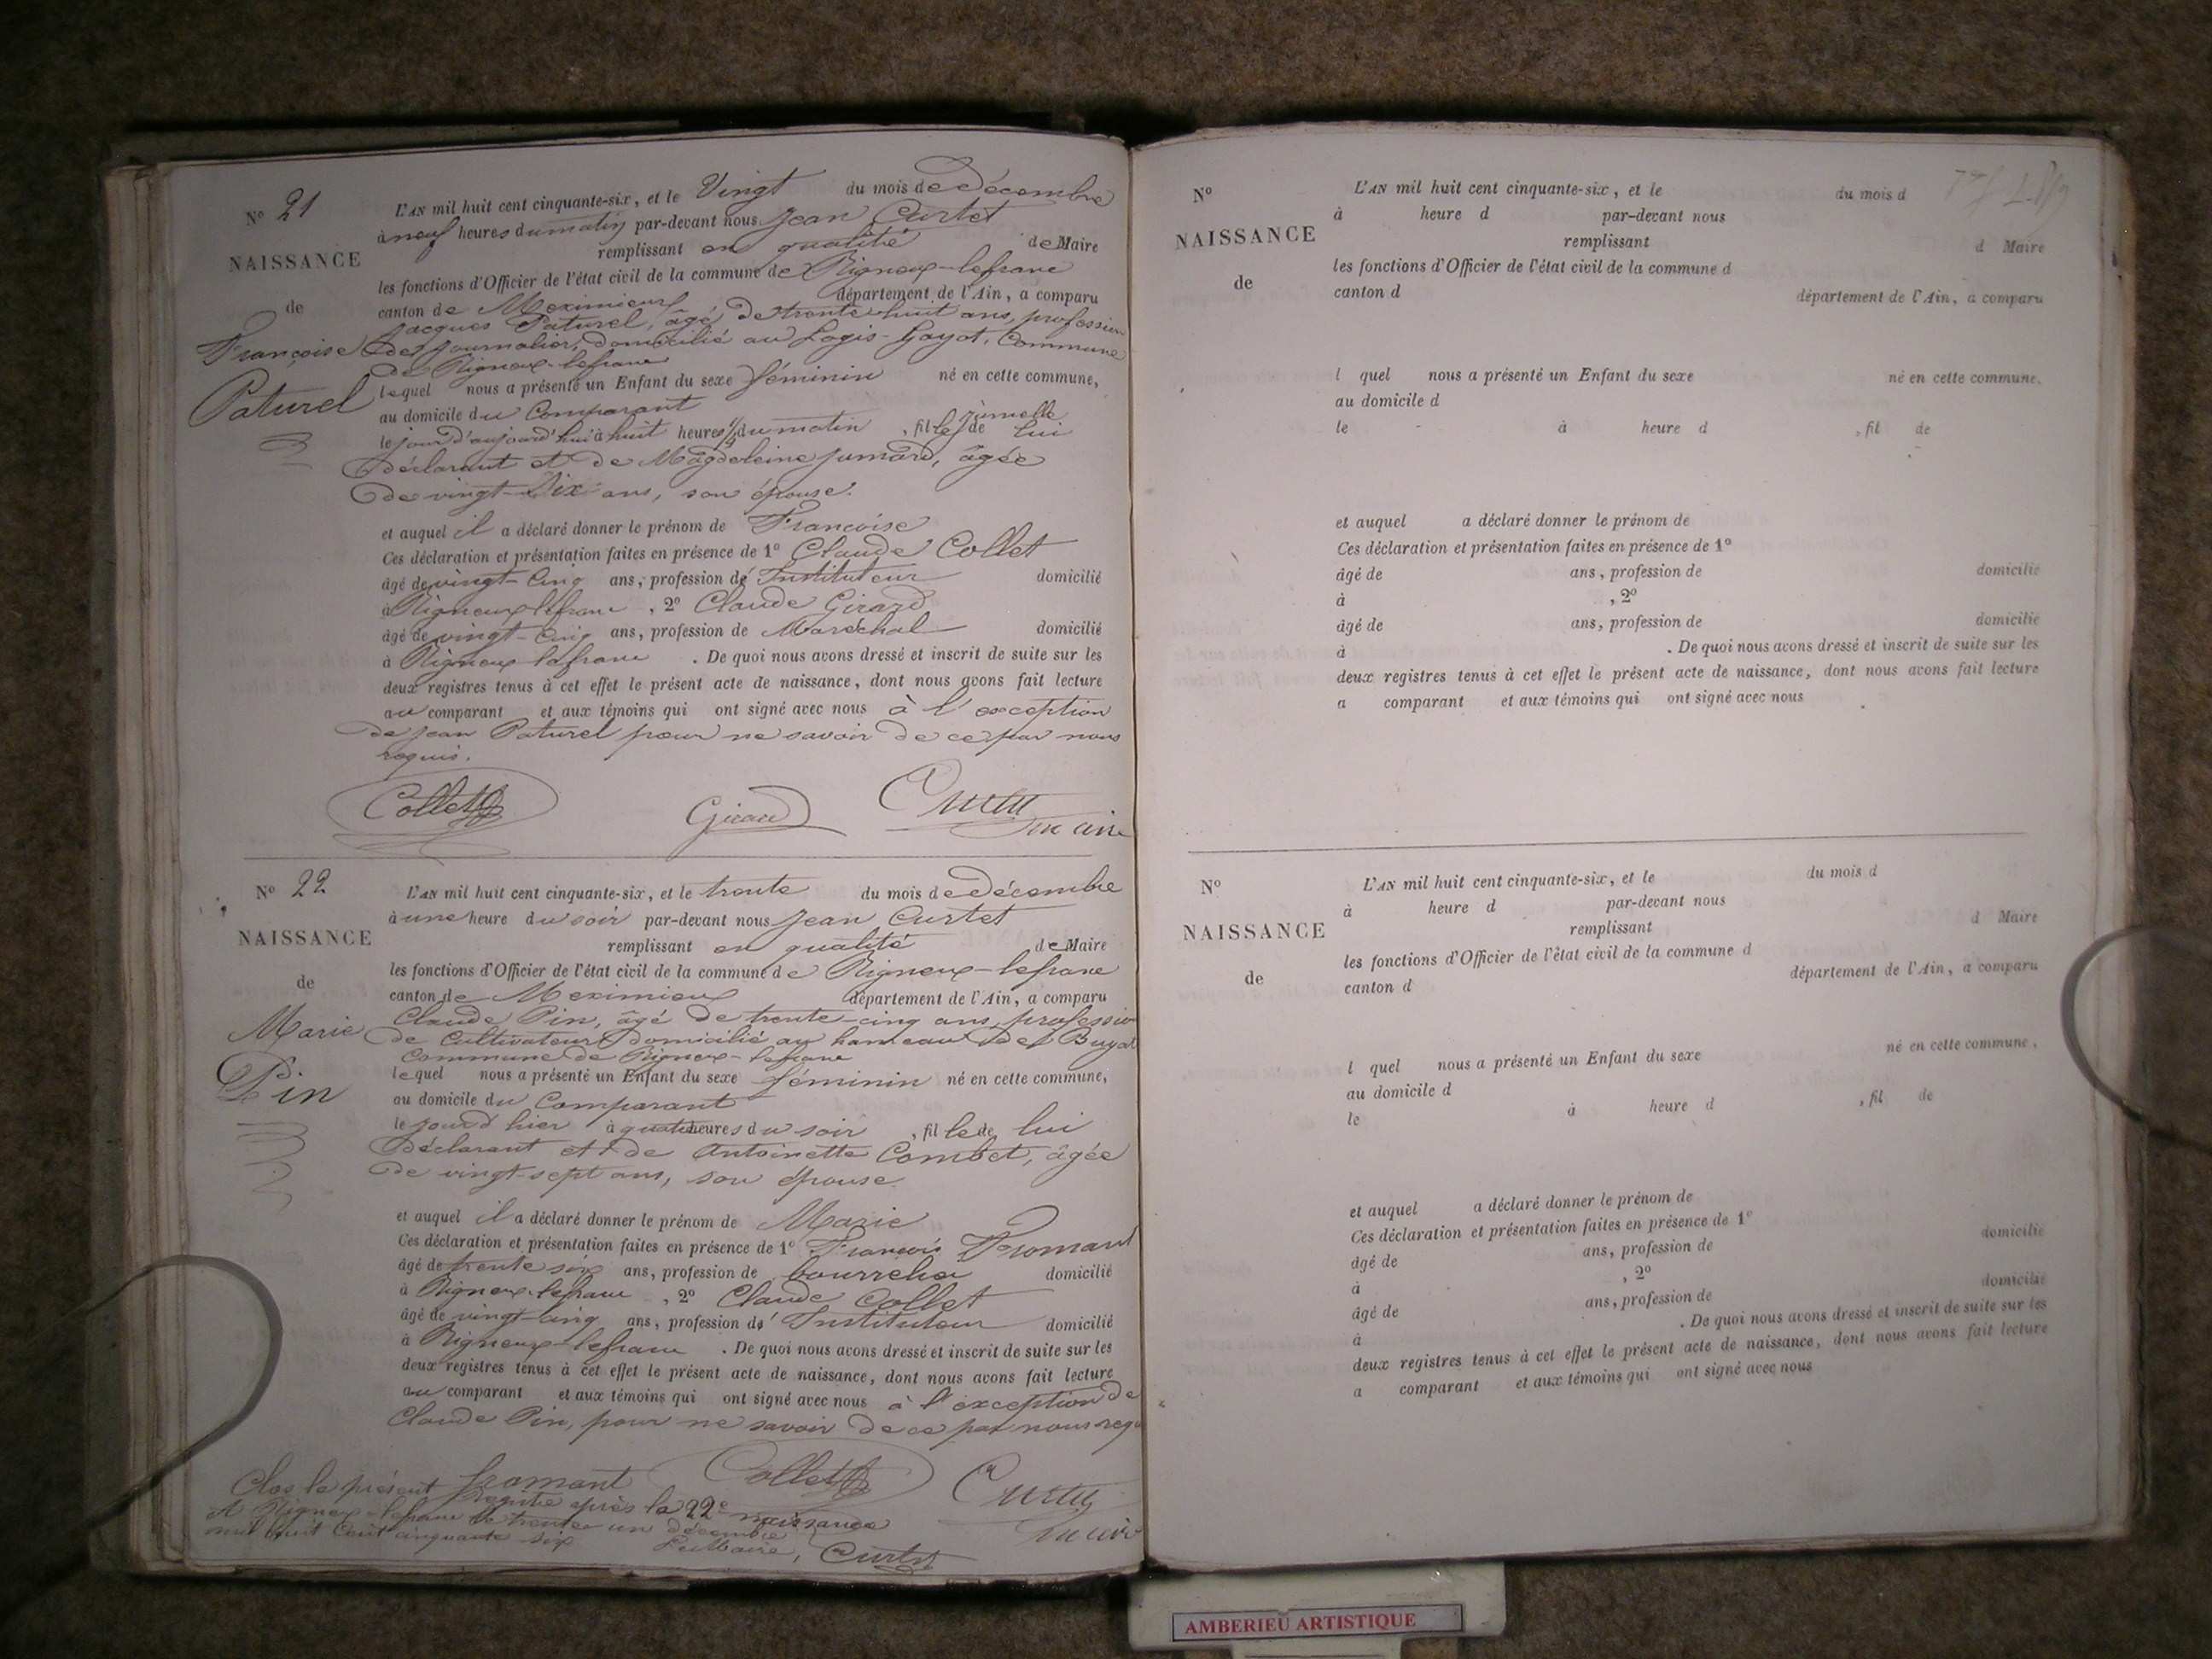 N° 21
NAISSANCE
de
Françoise
Paturel
L'AN mil huit cent cinquante-six, et le Vingt du mois de Décembre
à neuf heures du matin par-devant nous Jean Curtet
remplissant en qualité de Maire
les fonctions d'Officier de l'état civil de la commune de Rigneux-lefranc
canton de Meximieux département de l'Ain, a comparu
Jacques Paturel, âgé de trente huit ans, profession
de journalier, domicilié au Logis-Gayot, Commune
de Rigneux-lefranc
lequel nous a présenté un Enfant du sexe féminin né en cette commune,
au domicile du Comparant
le jour d'aujourd'hui à huit heures du matin , fille jumelle de lui
déclarant et de Magdeleine Jumard, âgée
de vingt-six ans, son épouse.
et auquel il a déclaré donner le prénom de Françoise
Ces déclaration et présentation faites en présence de 1° Claude Collet
âgé de vingt-cinq ans, profession d' Instituteur domicilié
à Rigneux lefranc , 2° Claude Girard
âgé de vingt-cinq ans, profession de Maréchal domicilié
à Rigneux lefranc . De quoi nous avons dressé et inscrit de suite sur les
deux registres tenus à cet effet le présent acte de naissance, dont nous avons fait lecture
au comparant et aux témoins qui ont signé avec nous à l'exception
de Jean Paturel pour ne savoir de ce par nous
requis.
Collet Girard Curtet
maire
N° 22
NAISSANCE
de
Marie
Pin
L'AN mil huit cent cinquante-six, et le trente du mois de Décembre
à une heure du soir par-devant nous Jean Curtet
remplissant en qualité de Maire
les fonctions d'Officier de l'état civil de la commune de Rigneux-lefranc
canton de Meximieux département de l'Ain, a comparu
Claude Pin, âgé de trente-cinq ans, profession
de Cultivateur domicilié au hameau de
Commune de Rigneux-lefranc
lequel nous a présenté un Enfant du sexe féminin né en cette commune,
au domicile du Comparant
le jour d'hier à quatre heures du soir , fille de lui
déclarant et de Antoinette Combet, âgée
de vingt-sept ans, son épouse.
et auquel il a déclaré donner le prénom de Marie
Ces déclaration et présentation faites en présence de 1° François Fromant
âgé de trente six ans, profession de bourrelier domicilié
à Rigneux lefranc , 2° Claude Collet
âgé de vingt-cinq ans, profession d' Instituteur domicilié
à Rigneux-lefranc . De quoi nous avons dressé et inscrit de suite sur les
deux registres tenus à cet effet le présent acte de naissance, dont nous avons fait lecture
au comparant et aux témoins qui ont signé avec nous à l'exception de
Claude Pin, pour ne savoir de ce par nous requ
fromant Collet Curtet
maire
Clos le présent registre après la 22e naissance
A Rigneux-lefranc le trente un décembre
mil huit cent cinquante six
Le Maire, Curtet
N°
NAISSANCE
de
L'AN mil huit cent cinquante-six, et le du mois d
à heure d par-devant nous
remplissant d Maire
les fonctions d'Officier de l'état civil de la commune d
canton d département de l'Ain, a comparu
l quel nous a présenté un Enfant du sexe né en cette commune,
au domicile d
le à heure d , fil de
et auquel a déclaré donner le prénom de
Ces déclaration et présentation faites en présence de 1°
âgé de ans, profession de domicilié
à , 2°
âgé de ans, profession de domicilié
à . De quoi nous avons dressé et inscrit de suite sur les
deux registres tenus à cet effet le présent acte de naissance, dont nous avons fait lecture
a comparant et aux témoins qui ont signé avec nous
N°
NAISSANCE
de
L'AN mil huit cent cinquante-six, et le du mois d
à heure d par-devant nous
remplissant d Maire
les fonctions d'Officier de l'état civil de la commune d
canton d département de l'Ain, a comparu
l quel nous a présenté un Enfant du sexe né en cette commune,
au domicile d
le à heure d , fil de
et auquel a déclaré donner le prénom de
Ces déclaration et présentation faites en présence de 1°
âgé de ans, profession de domicilié
à , 2°
âgé de ans, profession de domicilié
à . De quoi nous avons dressé et inscrit de suite sur les
deux registres tenus à cet effet le présent acte de naissance, dont nous avons fait lecture
a comparant et aux témoins qui ont signé avec nous
AMBERIEU ARTISTIQUE